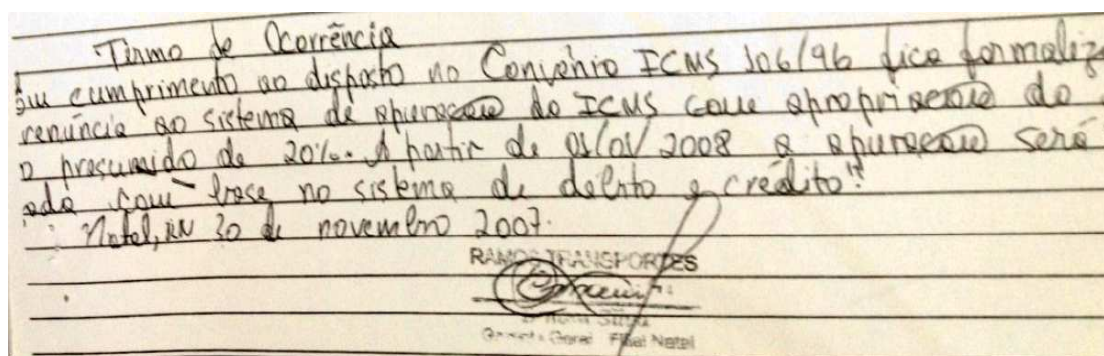 Termo de Ocorrência
Em cumprimento ao disposto no Convênio ICMS 106/96 fica formaliza
renúncia ao sistema de apuração do ICMS com apropriação do
o presumido de 20%. A partir de 01/01/2008 a apuração será
ada com base no sistema de débito e crédito"
Natal, RN 30 de novembro 2007.
RAMOS TRANSPORTES
Silva
Gerente Geral Filial Natal